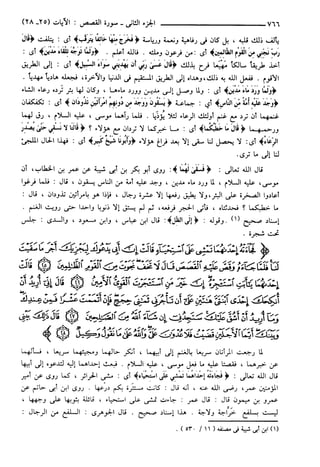 ٧٦٦ الجزء الثاني - سورة القصص : الآيات (٢٥، ٢٨)
يألف ذلك قلبه ، بل كان في رفاهية ونعمة ورياسة ﴿ فَخَرَجَ مِنْهَا خَائِفًا يَتَرَقَّبُ ﴾ أي : يتلفت ﴿ قَالَ
رَبِّ نَجِّنِي مِنَ الْقَوْمِ الظَّالِمِينَ ﴾ أي : من فرعون وملئه . فالله أعلم . ﴿ وَلَمَّا تَوَجَّهَ تِلْقَاءَ مَدْيَنَ ﴾ أي :
أخذ طريقاً سالكاً مهيعاً فرح بذلك ﴿ قَالَ عَسَى رَبِّي أَن يَهْدِيَنِي سَوَاءَ السَّبِيلِ ﴾ أي : إلى الطريق
الأقوم . ففعل الله به ذلك، وهداه إلى الطريق المستقيم في الدنيا والآخرة، فجعله هادياً مهدياً .
﴿ وَلَمَّا وَرَدَ مَاءَ مَدْيَنَ ﴾ أي : ولما وصل إلى مدين وورد ماءها ، وكان لها بئر ترده رعاء الشاء
﴿ وَجَدَ عَلَيْهِ أُمَّةً مِّنَ النَّاسِ ﴾ أي : جماعة ﴿ يَسْقُونَ وَوَجَدَ مِن دُونِهِمُ امْرَأَتَيْنِ تَذُودَانِ ﴾ أي : تكفكفان
غنمهما أن ترد مع غنم أولئك الرعاء لئلا يُؤذَيا . فلما رآهما موسى ، عليه السلام ، رق لهما
ورحمهما ﴿ قَالَ مَا خَطْبُكُمَا ﴾ أي : ما خبركما لا تردان مع هؤلاء ؟ ﴿ قَالَتَا لَا نَسْقِي حَتَّى يُصْدِرَ
الرِّعَاءُ ﴾ أي : لا يحصل لنا سقي إلا بعد فراغ هؤلاء ﴿ وَأَبُونَا شَيْخٌ كَبِيرٌ ﴾ أي : فهذا الحال الملجئ
لنا إلى ما ترى .
قال الله تعالى : ﴿ فَسَقَى لَهُمَا ﴾ : روى أبو بكر بن أبي شيبة عن عمر بن الخطاب، أن
موسى، عليه السلام ، لما ورد ماء مدين ، وجد عليه أمة من الناس يسقون ، قال : فلما فرغوا
أعادوا الصخرة على البئر، ولا يطيق رفعها إلا عشرة رجال ، فإذا هو بامرأتين تذودان ، قال :
ما خطبكما ؟ فحدثتاه ، فأتى الحجر فرفعه ، ثم لم يستق إلا ذنوبا واحدا حتى رويت الغنم .
إسناد صحيح (١) . وقوله : ﴿ إِلَى الظِّلِّ ﴾ : قال ابن عباس ، وابن مسعود ، والسدي : جلس
تحت شجرة .
فَجَاءَتْهُ إِحْدَاهُمَا تَمْشِي عَلَى اسْتِحْيَاءٍ قَالَتْ إِنَّ أَبِي يَدْعُوكَ لِيَجْزِيَكَ أَجْرَ مَا سَقَيْتَ
لَنَا فَلَمَّا جَاءَهُ وَقَصَّ عَلَيْهِ الْقَصَصَ قَالَ لَا تَخَفْ نَجَوْتَ مِنَ الْقَوْمِ الظَّالِمِينَ ﴿٢٥﴾
قَالَتْ إِحْدَاهُمَا يَا أَبَتِ اسْتَأْجِرْهُ إِنَّ خَيْرَ مَنِ اسْتَأْجَرْتَ الْقَوِيُّ الْأَمِينُ ﴿٢٦﴾ قَالَ إِنِّي أُرِيدُ
أَنْ أُنكِحَكَ إِحْدَى ابْنَتَيَّ هَاتَيْنِ عَلَى أَن تَأْجُرَنِي ثَمَانِيَ حِجَجٍ فَإِنْ أَتْمَمْتَ عَشْرًا
فَمِنْ عِندِكَ وَمَا أُرِيدُ أَنْ أَشُقَّ عَلَيْكَ سَتَجِدُنِي إِن شَاءَ اللَّهُ مِنَ الصَّالِحِينَ ﴿٢٧﴾ قَالَ
ذَلِكَ بَيْنِي وَبَيْنَكَ أَيَّمَا الْأَجَلَيْنِ قَضَيْتُ فَلَا عُدْوَانَ عَلَيَّ وَاللَّهُ عَلَى مَا نَقُولُ وَكِيلٌ ﴿٢٨﴾
لما رجعت المرأتان سريعا بالغنم إلى أبيهما ، أنكر حالهما ومجيئهما سريعا ، فسألهما
عن خبرهما ، فقصتا عليه ما فعل موسى ، عليه السلام . فبعث إحداهما إليه لتدعوه إلى أبيها
قال الله تعالى : ﴿ فَجَاءَتْهُ إِحْدَاهُمَا تَمْشِي عَلَى اسْتِحْيَاءٍ ﴾ أي : مشي الحرائر ، كما روي عن أمير
المؤمنين عمر، رضي الله عنه ، أنه قال : كانت مستترة بكم درعها . روى ابن أبي حاتم عن
عمرو بن ميمون قال : قال عمر : جاءت تمشي على استحياء ، قائلة بثوبها على وجهها ،
ليست بسلفع خرّاجة ولاجة . هذا إسناد صحيح . قال الجوهري : السلفع من الرجال :
(١) ابن أبي شيبة في مصنفه ( ١١ / ٥٣٠ ) .